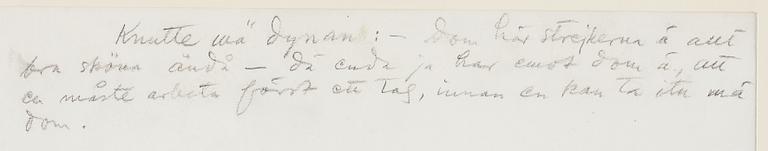 Knutte mä dynan: — Dom här strejkerna ä allt
bra sköna ändå — dä enda ja har emot dom ä, att
en måste arbeta först ett tag, innan en kan ta itu mä
dom.